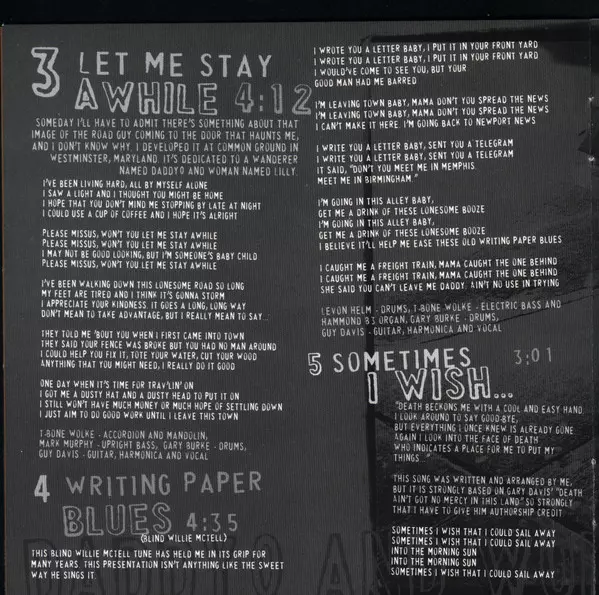 3 LET ME STAY
AWHILE 4:12
SOMEDAY I'LL HAVE TO ADMIT THERE'S SOMETHING ABOUT THAT
IMAGE OF THE ROAD GUY COMING TO THE DOOR THAT HAUNTS ME,
AND I DON'T KNOW WHY. I DEVELOPED IT AT COMMON GROUND IN
WESTMINSTER, MARYLAND. IT'S DEDICATED TO A WANDERER
NAMED DADDYO AND WOMAN NAMED LILLY.
I'VE BEEN LIVING HARD, ALL BY MYSELF ALONE
I SAW A LIGHT AND I THOUGHT YOU MIGHT BE HOME
I HOPE THAT YOU DON'T MIND ME STOPPING BY LATE AT NIGHT
I COULD USE A CUP OF COFFEE AND I HOPE IT'S ALRIGHT
PLEASE MISSUS, WON'T YOU LET ME STAY AWHILE
PLEASE MISSUS, WON'T YOU LET ME STAY AWHILE
I MAY NOT BE GOOD LOOKING, BUT I'M SOMEONE'S BABY CHILD
PLEASE MISSUS, WON'T YOU LET ME STAY AWHILE
I'VE BEEN WALKING DOWN THIS LONESOME ROAD SO LONG
MY FEET ARE TIRED AND I THINK IT'S GONNA STORM
I APPRECIATE YOUR KINDNESS. IT GOES A LONG, LONG WAY
DON'T MEAN TO TAKE ADVANTAGE, BUT I REALLY MEAN TO SAY...
THEY TOLD ME 'BOUT YOU WHEN I FIRST CAME INTO TOWN
THEY SAID YOUR FENCE WAS BROKE BUT YOU HAD NO MAN AROUND
I COULD HELP YOU FIX IT, TOTE YOUR WATER, CUT YOUR WOOD
ANYTHING THAT YOU MIGHT NEED, I REALLY DO IT GOOD
ONE DAY WHEN IT'S TIME FOR TRAV'LIN' ON
I GOT ME A DUSTY HAT AND A DUSTY HEAD TO PUT IT ON
I STILL WON'T HAVE MUCH MONEY OR MUCH HOPE OF SETTLING DOWN
I JUST AIM TO DO GOOD WORK UNTIL I LEAVE THIS TOWN
T-BONE WOLKE - ACCORDION AND MANDOLIN,
MARK MURPHY - UPRIGHT BASS, GARY BURKE - DRUMS,
GUY DAVIS - GUITAR, HARMONICA AND VOCAL
4 WRITING PAPER
BLUES 4:35
(BLIND WILLIE MCTELL)
THIS BLIND WILLIE MCTELL TUNE HAS HELD ME IN ITS GRIP FOR
MANY YEARS. THIS PRESENTATION ISN'T ANYTHING LIKE THE SWEET
WAY HE SINGS IT.
I WROTE YOU A LETTER BABY, I PUT IT IN YOUR FRONT YARD
I WROTE YOU A LETTER BABY, I PUT IT IN YOUR FRONT YARD
I WOULD'VE COME TO SEE YOU, BUT YOUR
GOOD MAN HAD ME BARRED
I'M LEAVING TOWN BABY, MAMA DON'T YOU SPREAD THE NEWS
I'M LEAVING TOWN BABY, MAMA DON'T YOU SPREAD THE NEWS
I CAN'T MAKE IT HERE. I'M GOING BACK TO NEWPORT NEWS
I WRITE YOU A LETTER BABY, SENT YOU A TELEGRAM
I WRITE YOU A LETTER BABY, SENT YOU A TELEGRAM
IT SAID, "DON'T YOU MEET ME IN MEMPHIS.
MEET ME IN BIRMINGHAM."
I'M GOING IN THIS ALLEY BABY,
GET ME A DRINK OF THESE LONESOME BOOZE
I'M GOING IN THIS ALLEY BABY,
GET ME A DRINK OF THESE LONESOME BOOZE
I BELIEVE IT'LL HELP ME EASE THESE OLD WRITING PAPER BLUES
I CAUGHT ME A FREIGHT TRAIN, MAMA CAUGHT THE ONE BEHIND
I CAUGHT ME A FREIGHT TRAIN, MAMA CAUGHT THE ONE BEHIND
SHE SAID YOU CAN'T LEAVE ME DADDY. AIN'T NO USE IN TRYING
LEVON HELM - DRUMS, T-BONE WOLKE - ELECTRIC BASS AND
HAMMOND B3 ORGAN, GARY BURKE - DRUMS,
GUY DAVIS - GUITAR, HARMONICA AND VOCAL
5 SOMETIMES 3:01
I WISH...
"DEATH BECKONS ME WITH A COOL AND EASY HAND
I LOOK AROUND TO SAY GOOD-BYE,
BUT EVERYTHING I ONCE KNEW IS ALREADY GONE
AGAIN I LOOK INTO THE FACE OF DEATH
WHO INDICATES A PLACE FOR ME TO PUT MY
THINGS..."
THIS SONG WAS WRITTEN AND ARRANGED BY ME,
BUT IT IS STRONGLY BASED ON GARY DAVIS' "DEATH
AIN'T GOT NO MERCY IN THIS LAND." SO STRONGLY
THAT I HAVE TO GIVE HIM AUTHORSHIP CREDIT
SOMETIMES I WISH THAT I COULD SAIL AWAY
SOMETIMES I WISH THAT I COULD SAIL AWAY
INTO THE MORNING SUN
INTO THE MORNING SUN
SOMETIMES I WISH THAT I COULD SAIL AWAY